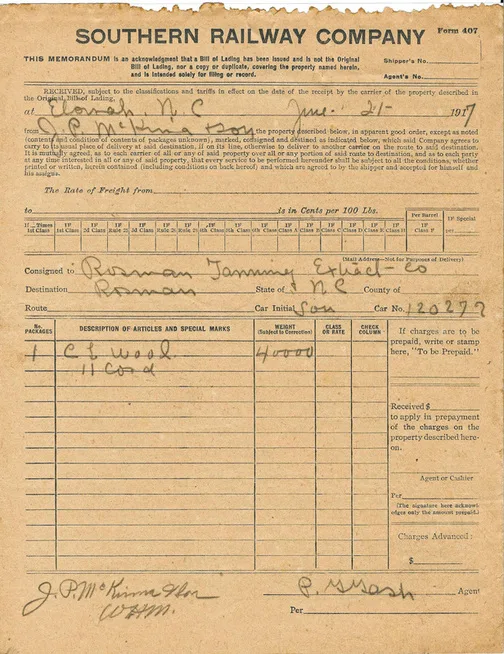 SOUTHERN RAILWAY COMPANY
Form 407
THIS MEMORANDUM is an acknowledgment that a Bill of Lading has been issued and is not the Original
Bill of Lading, nor a copy or duplicate, covering the property named herein,
and is intended solely for filing or record.
Shipper's No.
Agent's No.
RECEIVED, subject to the classifications and tariffs in effect on the date of the receipt by the carrier of the property described in
the Original Bill of Lading,
at N C June 21- 1917
from J. P. the property described below, in apparent good order, except as noted
(contents and condition of contents of packages unknown), marked, consigned and destined as indicated below, which said Company agrees to
carry to its usual place of delivery at said destination, if on its line, otherwise to deliver to another carrier on the route to said destination.
It is mutually agreed, as to each carrier of all or any of said property over all or any portion of said route to destination, and as to each party
at any time interested in all or any of said property, that every service to be performed hereunder shall be subject to all the conditions, whether
printed or written, herein contained (including conditions on back hereof) and which are agreed to by the shipper and accepted for himself and
his assigns.
The Rate of Freight from
to is in Cents per 100 Lbs.
Per Barrel
IF Special
If Times 1st Class
IF 1st Class
IF 2d Class
IF Rule 25
IF 3d Class
IF Rule 26
IF Rule 28
IF 4th Class
IF 5th Class
IF 6th Class
IF Class A
IF Class B
IF Class C
IF Class D
IF Class E
IF Class H
IF Class F
per
(Mail Address—Not for Purposes of Delivery)
Consigned to Rosman Tanning Extract Co
Destination Rosman State of N C County of
Route Car Initial Sou Car No. 120277
No. PACKAGES
DESCRIPTION OF ARTICLES AND SPECIAL MARKS
WEIGHT (Subject to Correction)
CLASS OR RATE
CHECK COLUMN
1 C L Wood 40000
11 Cord
If charges are to be
prepaid, write or stamp
here, "To be Prepaid."
Received $
to apply in prepayment
of the charges on the
property described here-
on.
Agent or Cashier
Per
(The signature here acknowl-
edges only the amount prepaid.)
Charges Advanced:
$
J. P. McKinna
WHM.
Agent
Per